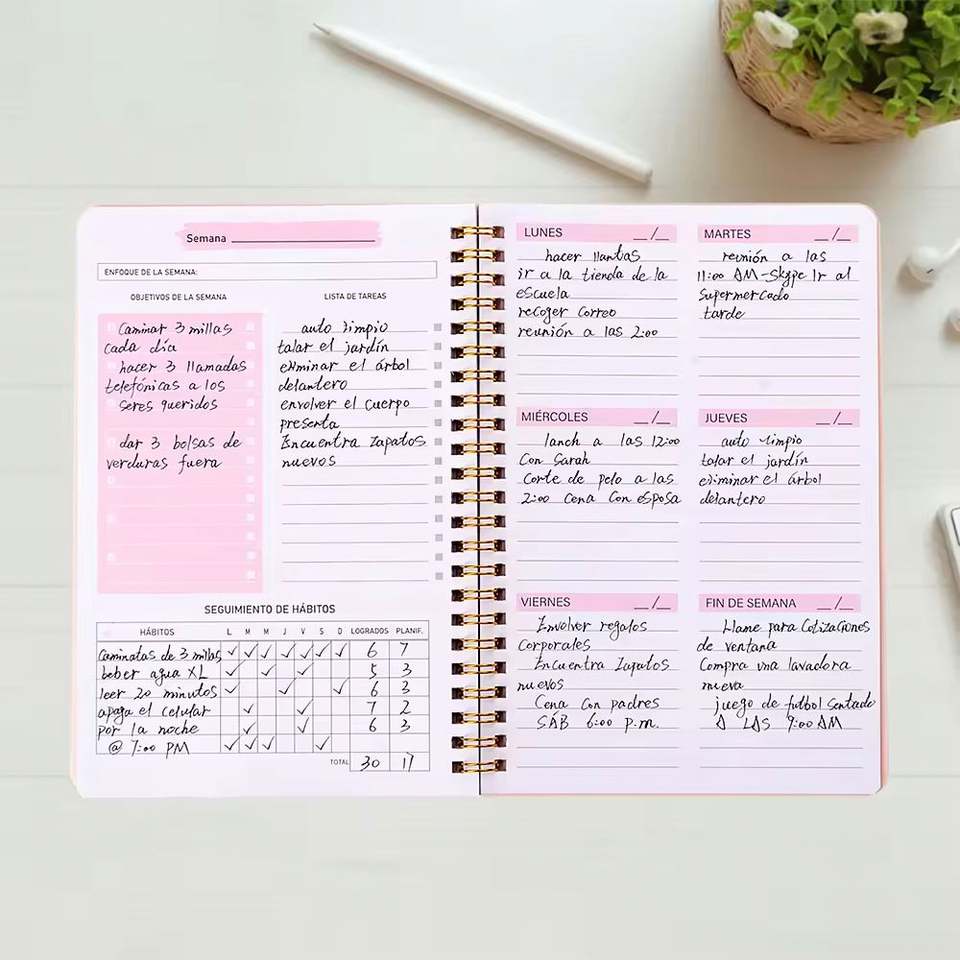 Semana
ENFOQUE DE LA SEMANA:
OBJETIVOS DE LA SEMANA
Caminar 3 millas
cada día
hacer 3 llamadas
telefónicas a los
seres queridos
dar 3 bolsas de
verduras fuera
LISTA DE TAREAS
auto limpio
talar el jardín
eliminar el árbol
delantero
envolver el cuerpo
presenta
Encuentra zapatos
nuevos
SEGUIMIENTO DE HÁBITOS
HÁBITOS L M M J V S D LOGRADOS PLANIF.
Caminatas de 3 millas ✓ ✓ ✓ ✓ ✓ ✓ ✓ 6 7
beber agua XL ✓ ✓ ✓ 5 3
leer 20 minutos ✓ ✓ ✓ 6 3
apaga el celular ✓ ✓ 7 2
por la noche ✓ ✓ 6 3
@ 7:00 PM ✓ ✓ ✓ ✓
TOTAL 30 17
LUNES __/__
hacer llantas
ir a la tienda de la
escuela
recoger correo
reunión a las 2:00
MARTES __/__
reunión a las
11:00 AM-Skype Ir al
Supermercado
tarde
MIÉRCOLES __/__
lanch a las 12:00
Con Sarah
Corte de pelo a las
2:00 Cena Con esposa
JUEVES __/__
auto limpio
talar el jardín
eliminar el árbol
delantero
VIERNES __/__
Envolver regalos
corporales
Encuentra Zapatos
nuevos
Cena Con padres
SÁB 6:00 p.m.
FIN DE SEMANA __/__
Llame para Cotizaciones
de ventana
Compra una lavadora
nueva
juego de futbol Sentado
A LAS 9:00 AM